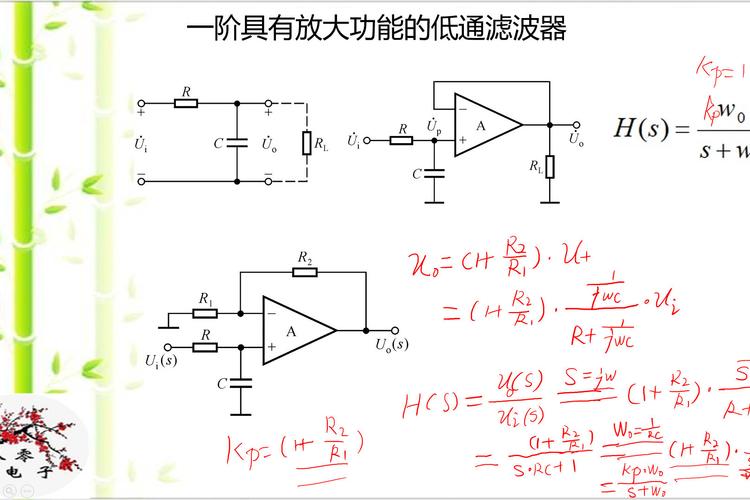 一阶具有放大功能的低通滤波器
Kp=1
R
+
+
U̇i
C
U̇o
RL
−
−
−
A
U̇i
R
U̇p
+
C
RL
U̇o
H(s) = Kpw0
s + w
R2
R1
−
A
R
+
Ui(s)
C
Uo(s)
Uo=(1+R2/R1)·U+
=(1+R2/R1)·(1/jwc)/(R+1/jwc)·Ui
H(S)=Uo(S)/Ui(S) S=jw (1+R2/R1)·
=(1+R2/R1)/(S·RC+1) W0=1/RC (1+R2/R1)·
=Kp·W0/(S+W0)
Kp=(1+R2/R1)
零
电 子